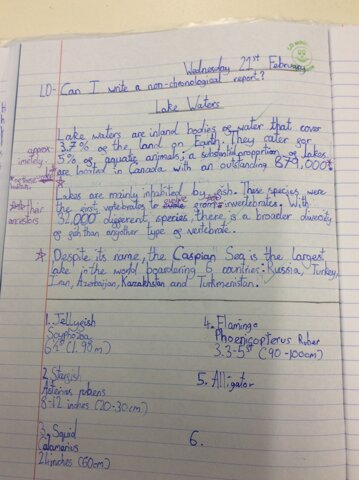 Wednesday 21st February
LO- Can I write a non-chronological report?
Lake Waters
Lake waters are inland bodies of water that cover
approx-
imetely
3.7% of the land on Earth. They cater for
5% of aquatic animals; a substantial proportion of lakes
are located in Canada with an outstanding 879,000
Lakes are mainly inhabited by fish. These species were
the first vertebrates to evolve from invertebrates. With
their
ancestors
32,000 different species, there is a broader diversity
of fish than any other type of vertebrate.
Despite its name, the Caspian Sea is the largest
lake in the world boardering 6 countries: Russia, Turkey,
Iran, Azerbaijan, Kazakhstan and Turkmenistan.
1. Jellyfish
Scyphozoa
6½ ft (1.98m)
4. Flamingo
Phoenicopterus Rober
3.3-5ft (90-100cm)
2. Starfish
Asterias rubens
8-12 inches (20-30cm)
5. Alligator
3. Squid
Calamarius
24 inches (60cm)
6.